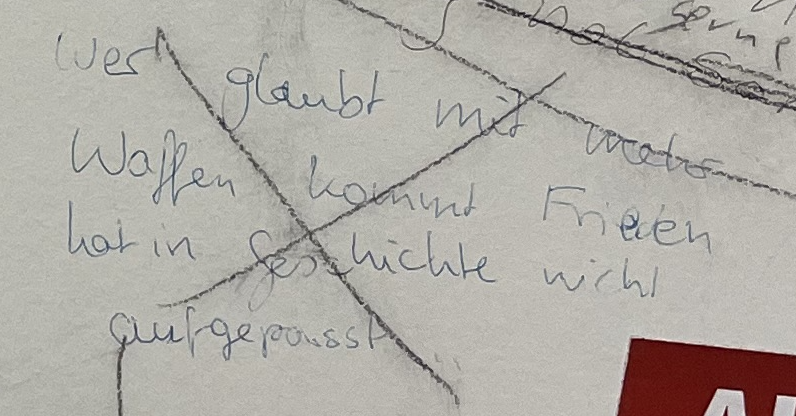 Wer glaubt mit mehr
Waffen kommt Frieden
hat in Geschichte nicht
aufgepasst